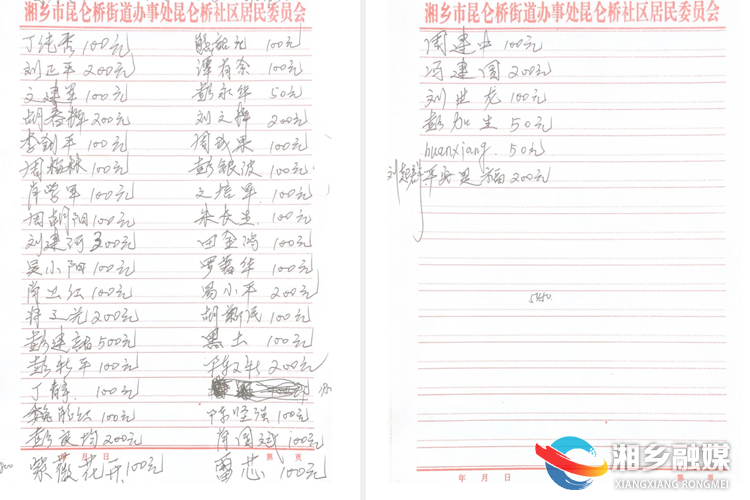 湘乡市昆仑桥街道办事处昆仑桥社区居民委员会
丁纯秀 100元
刘正平 200元
文建军 100元
胡春辉 200元
李剑平 100元
周梅林 100元
肖学军 100元
周朝阳 100元
刘建河 200元
吴小阳 100元
肖兰红 100元
蒋文光 200元
彭建韶 500元
彭新平 100元
丁静 100元
100元
彭良均 200元
紫薇花开 100元
100元
谭有余 100元
彭永华 50元
刘文辉 200元
周秋果 100元
彭银波 100元
文培军 100元
朱长生 100元
田金鸿 100元
罗蓉华 100元
冯小平 200元
胡新民 100元
黑土 100元
200元
陈坚强 100元
肖国斌 100元
雷芯 100元
年 月 日 第 页
湘乡市昆仑桥街道办事处昆仑桥社区居民委员会
周建中 100元
冯建国 200元
刘世龙 100元
彭加生 50元
huanxiang. 50元
刘超群 平安是福 200元
5450.
年 月 日 第 页
湘乡融媒
XIANGXIANG RONGMEI